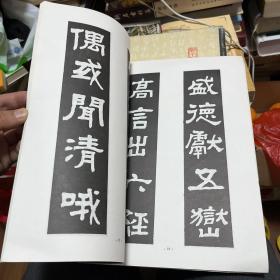 盛德獻五嶽
高言出六經
偶或聞清哦